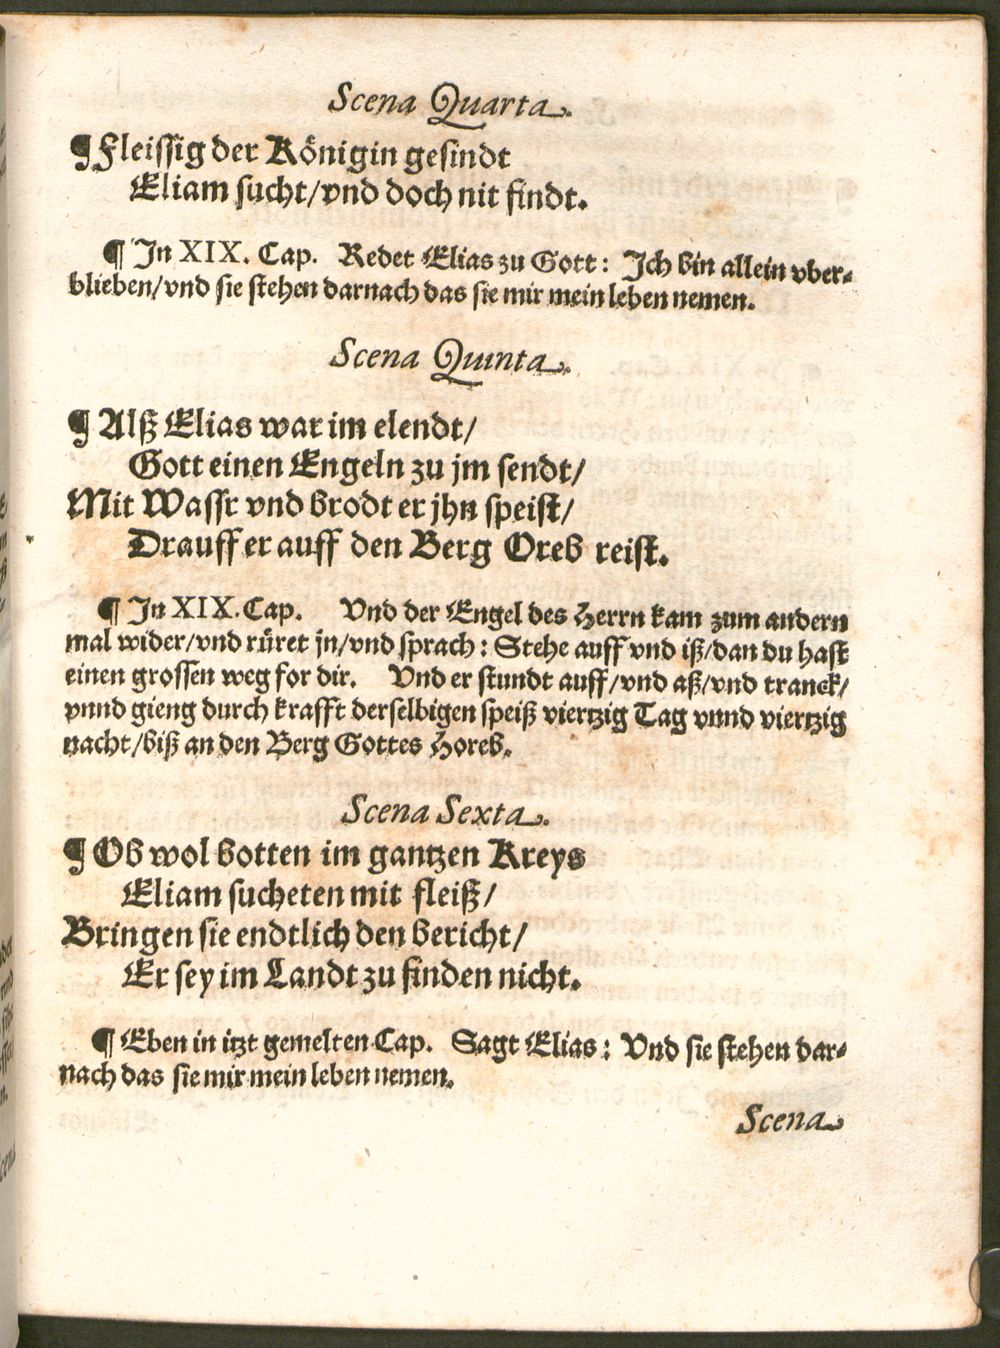 Scena Quarta.
¶ Fleissig der Königin gesindt
Eliam sucht/vnd doch nit findt.
¶ In XIX. Cap. Redet Elias zu Gott: Ich bin allein vber-
blieben/vnd sie stehen darnach das sie mir mein leben nemen.
Scena Quinta.
¶ Alß Elias war im elendt/
Gott einen Engeln zu jm sendt/
Mit Wassr vnd brodt er jhn speist/
Drauff er auff den Berg Oreb reist.
¶ In XIX. Cap. Vnd der Engel des Herrn kam zum andern
mal wider/vnd rüret jn/vnd sprach: Stehe auff vnd iß/dan du hast
einen grossen weg for dir. Vnd er stundt auff/vnd aß/vnd tranck/
vnnd gieng durch krafft derselbigen speiß viertzig Tag vnnd viertzig
nacht/biß an den Berg Gottes Horeb.
Scena Sexta.
¶ Ob wol botten im gantzen Kreys
Eliam sucheten mit fleiß/
Bringen sie endtlich den bericht/
Er sey im Landt zu finden nicht.
¶ Eben in itzt gemelten Cap. Sagt Elias: Vnd sie stehen dar-
nach das sie mir mein leben nemen.
Scena